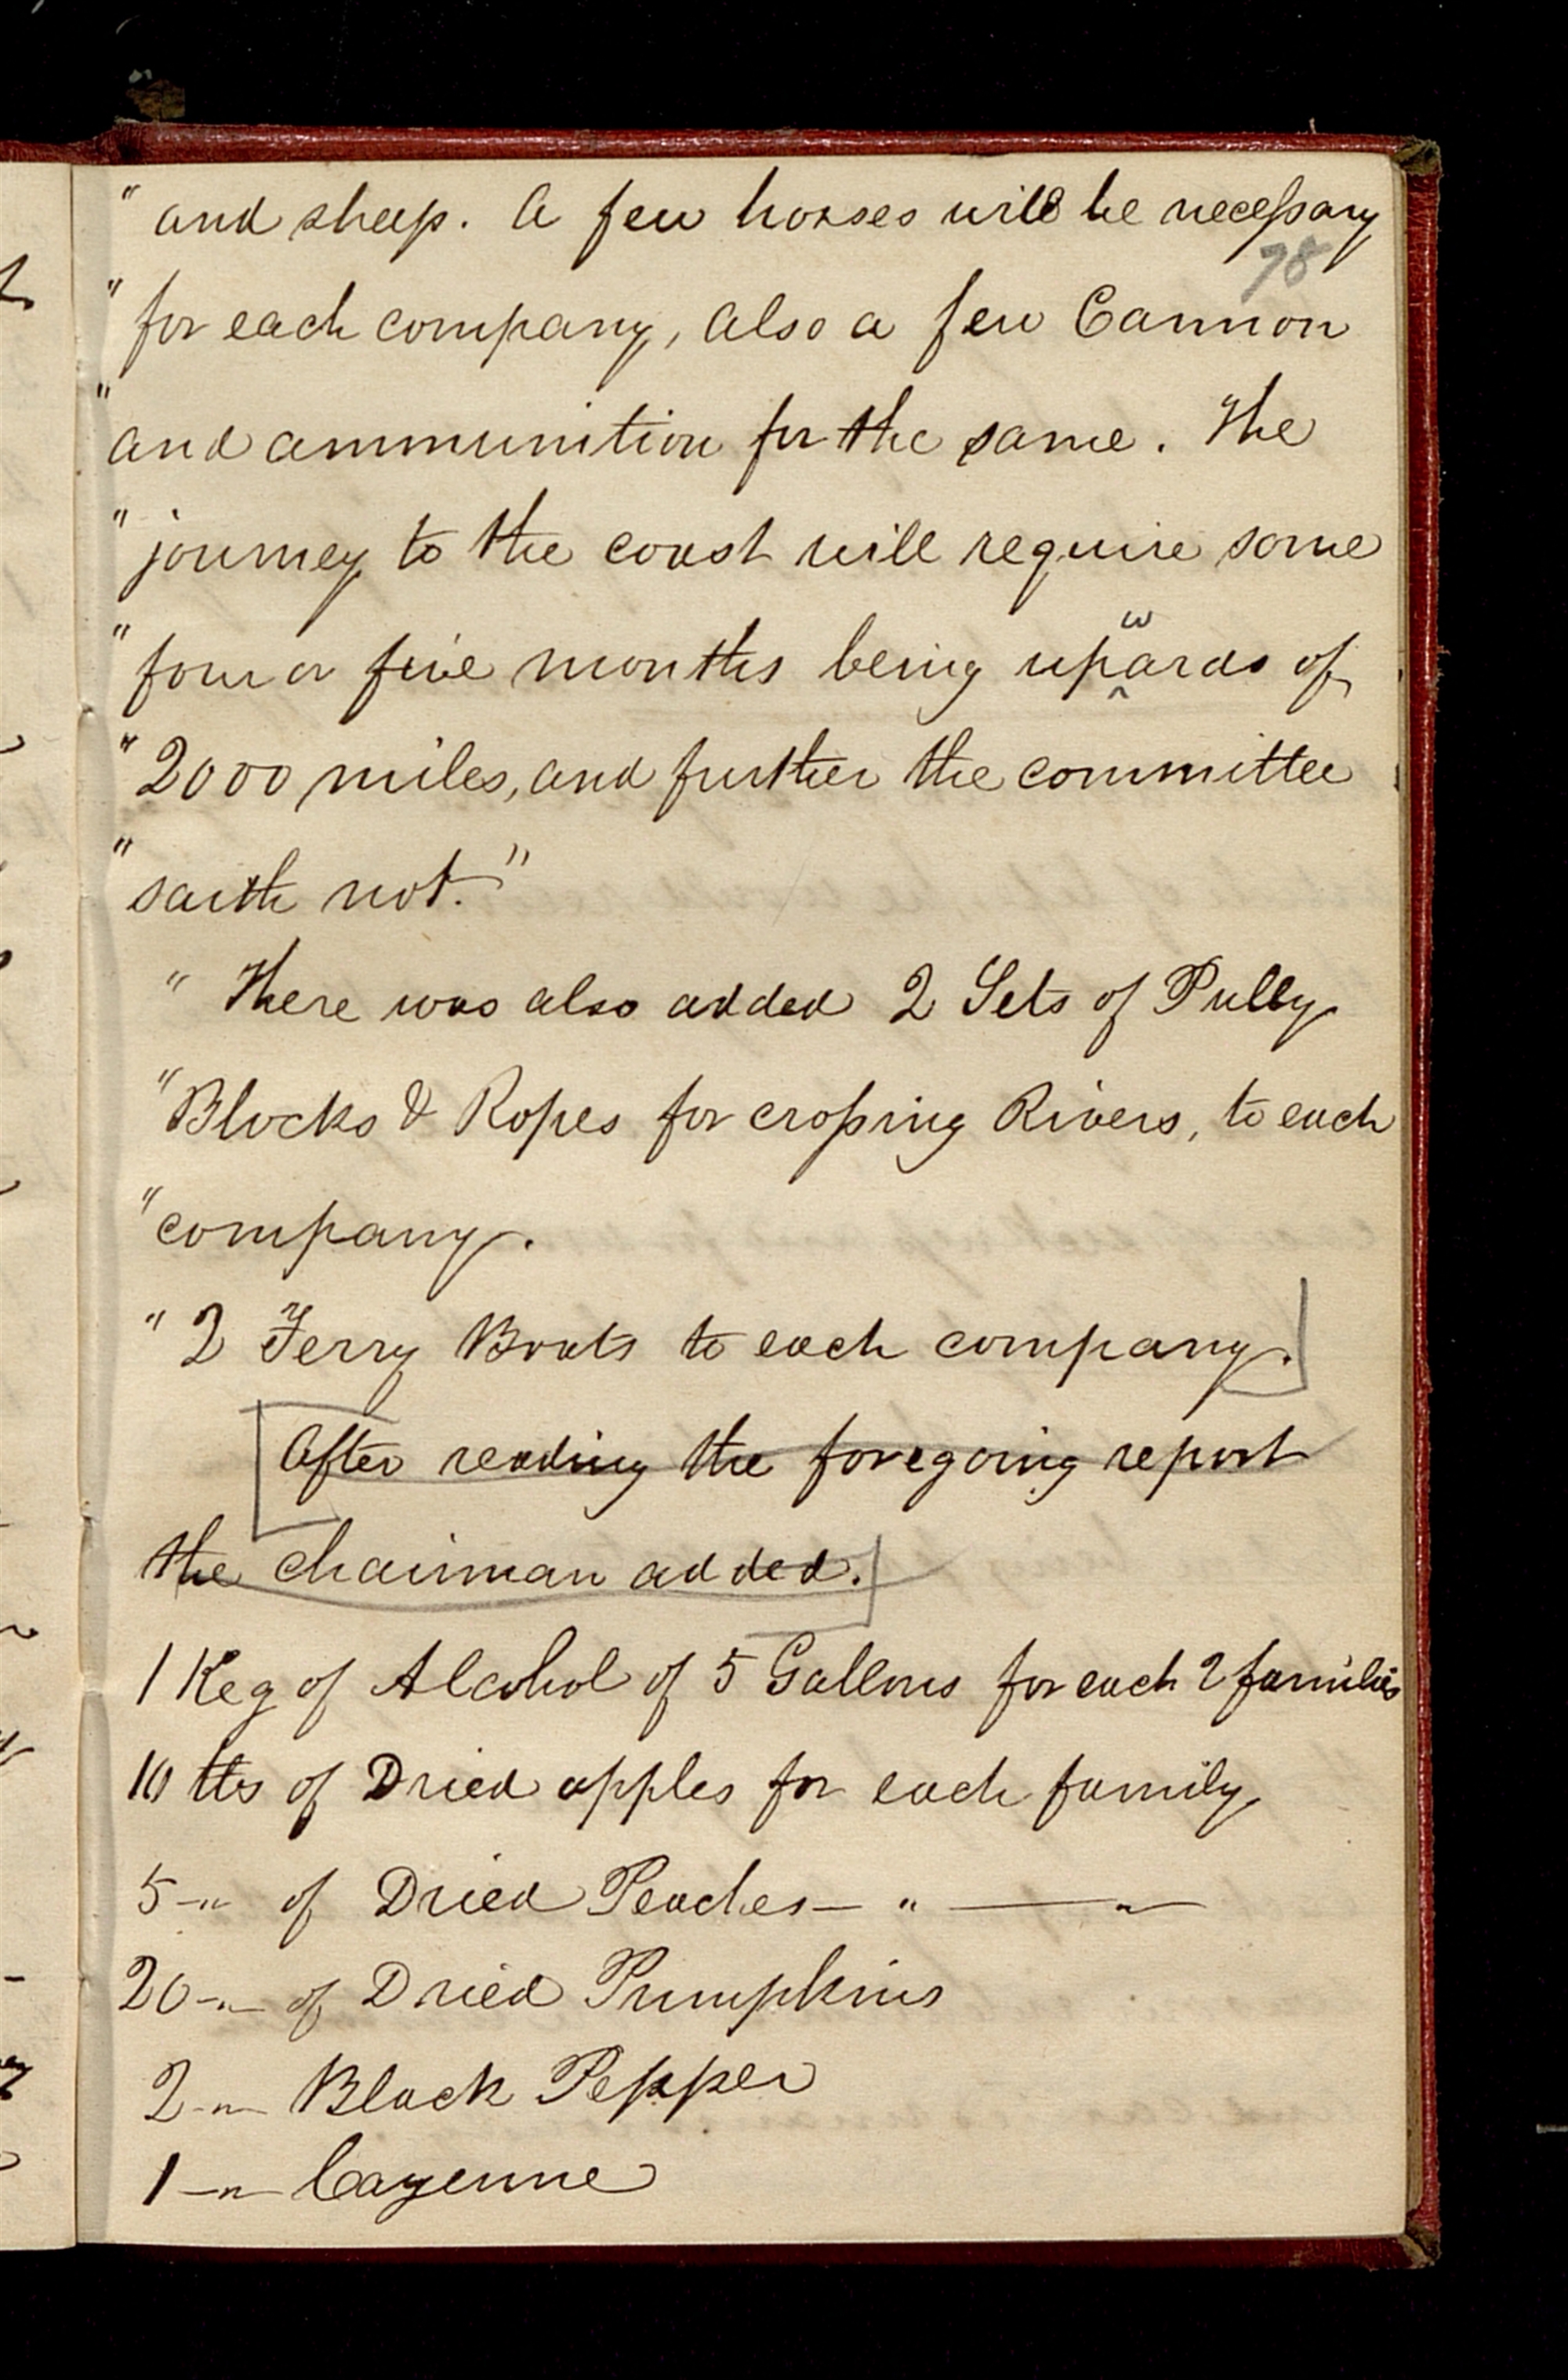 " and sheep. A few horses will be necessary
78
" for each company, Also a few Cannon
" and ammunition for the same. The
" journey to the coast will require some
" four or five months being upwards of
" 2000 miles, and further the committee
" saith not."
" There was also added 2 Sets of Pully
" Blocks & Ropes for crossing Rivers, to each
" company.
" 2 Ferry Boats to each company.
After reading the foregoing report
the chairman added.
1 Keg of Alcohol of 5 Gallons for each 2 families
10 lbs of Dried apples for each family
5 -"- of Dried Peaches — " — " —
20 -"- of Dried Pumpkins
2 -"- Black Pepper
1 -"- Cayenne